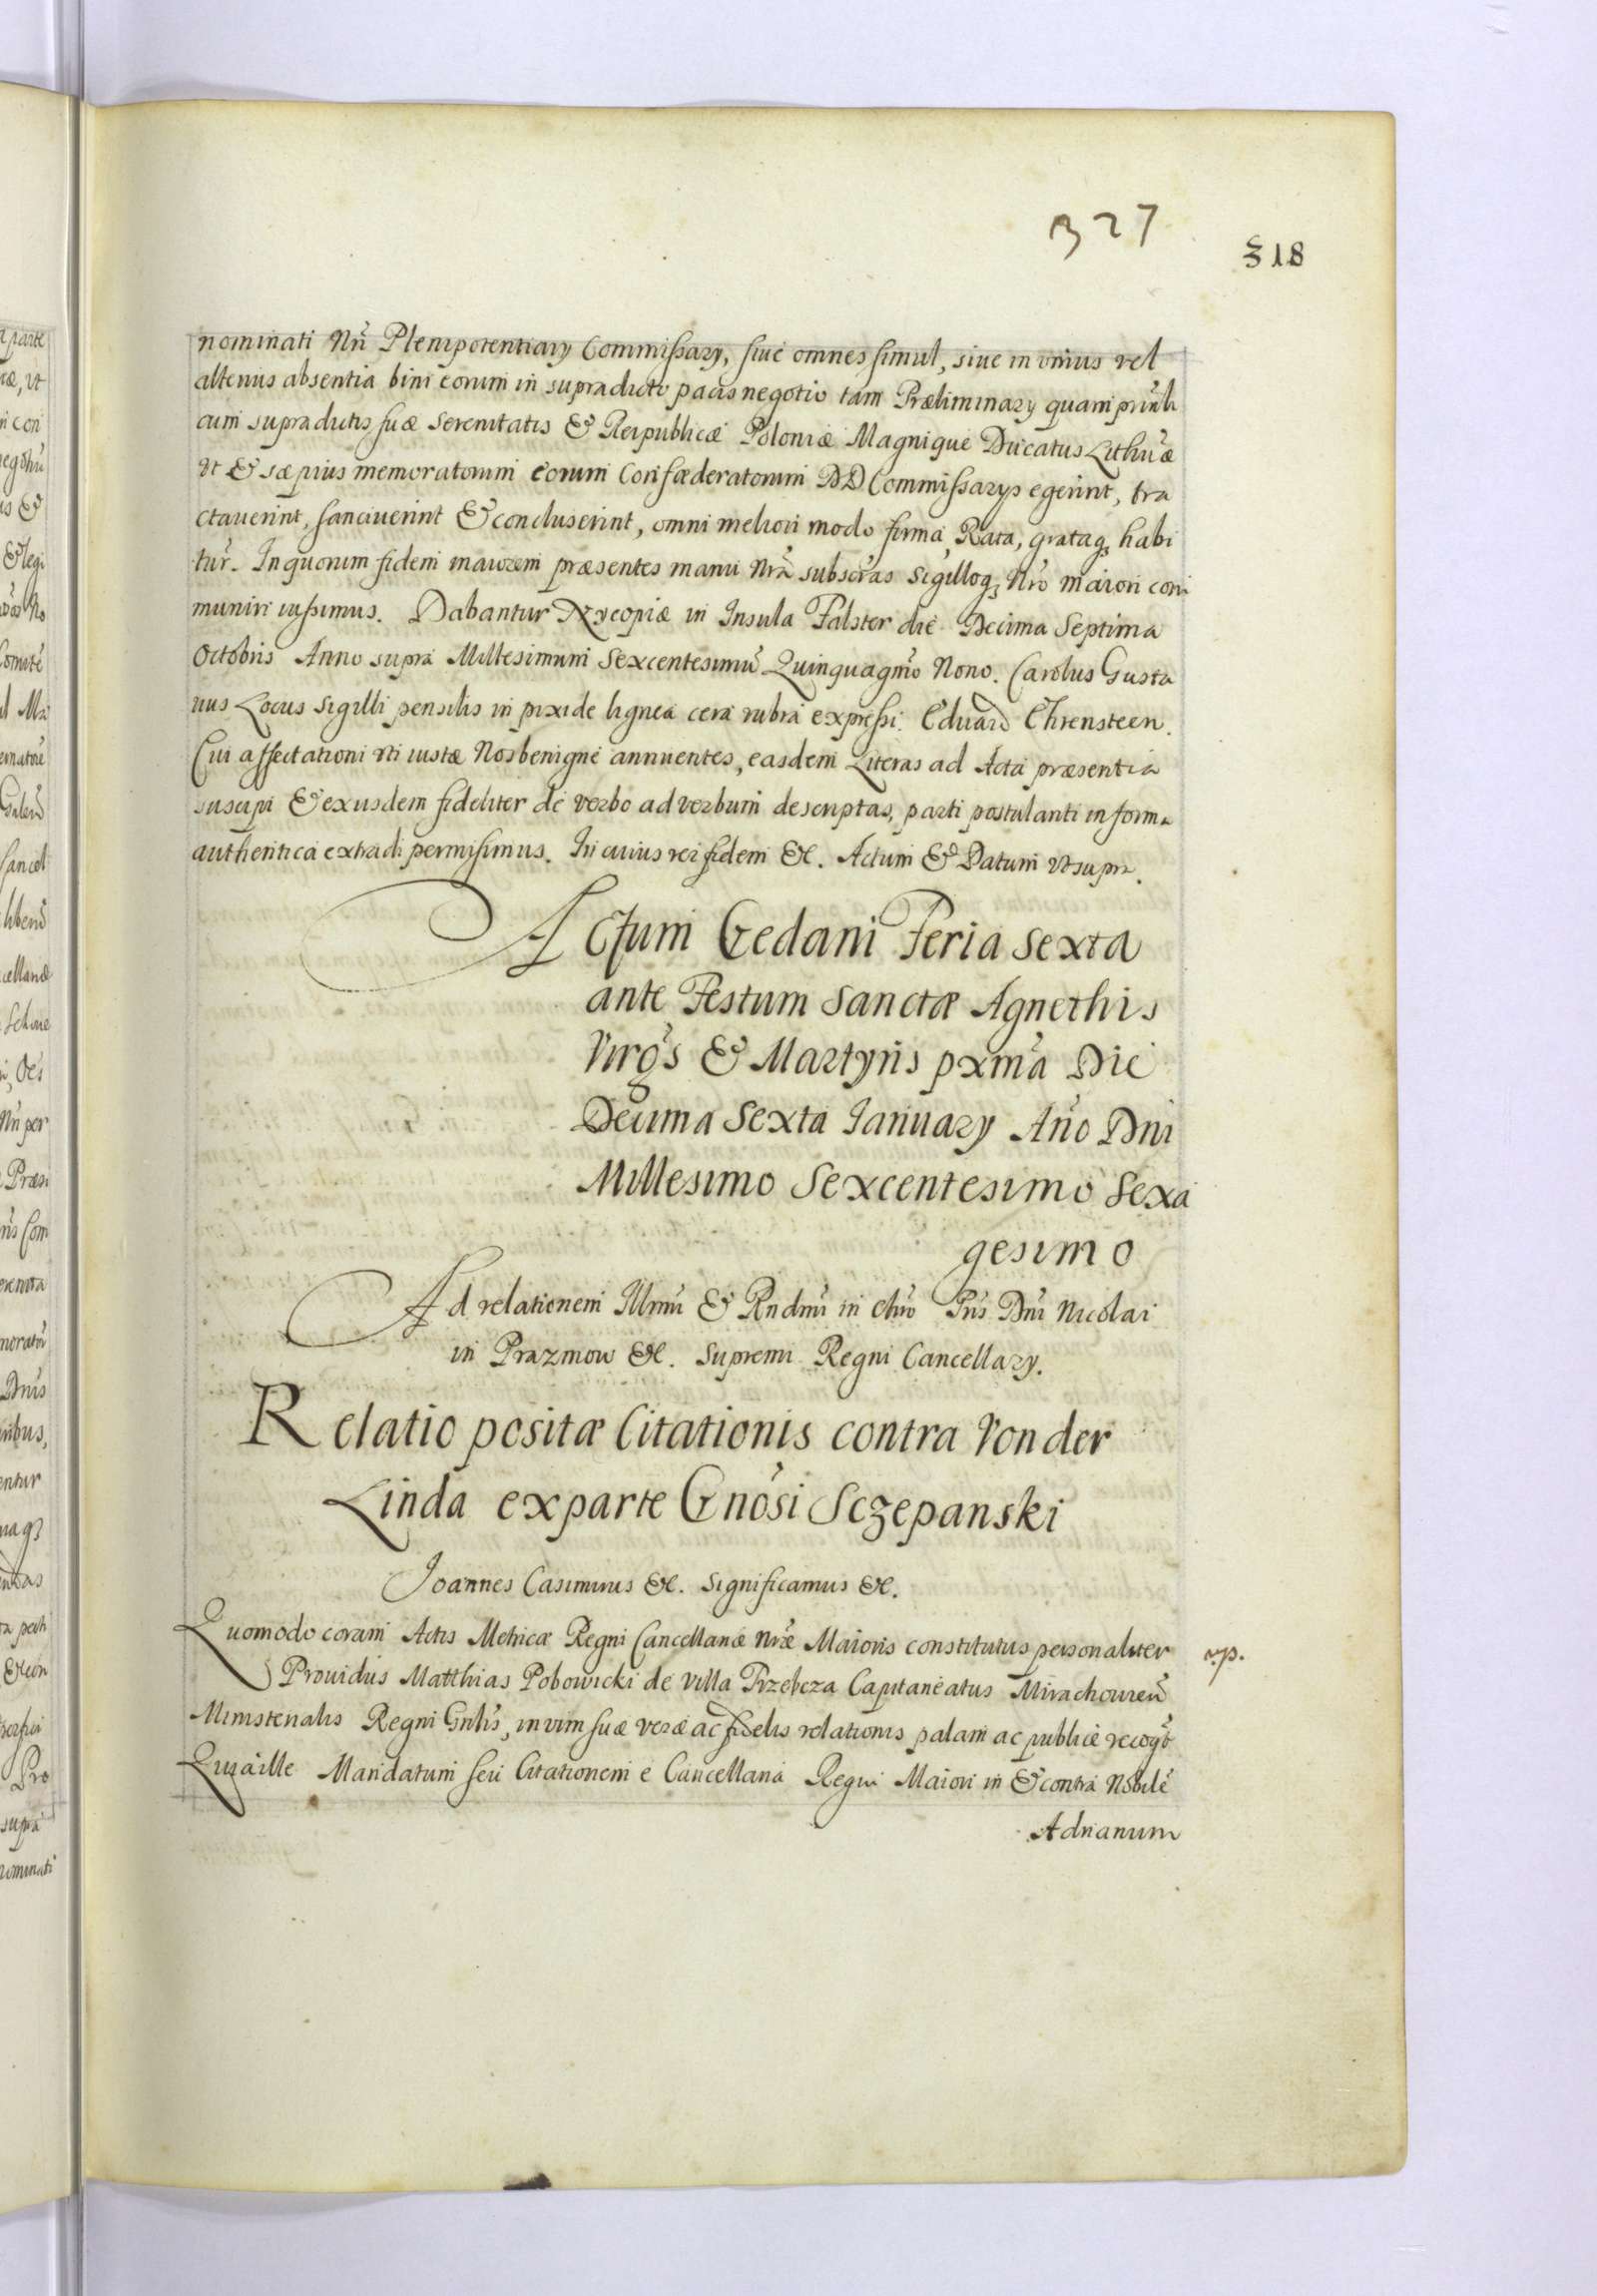 327
318
nominati Nr̃i Plenipotentiary Commissary, siue omnes simul, siue in vnius vel
alterius absentia bini eorum in supradicto pacis negotio tam Præliminary quam prin̄li
cum supradictis suæ Serenitatis & Reipublicæ Poloniæ Magnique Ducatus Lithuæ
vt & sæpius memoratorum eorum Confæderatorum DD Commissarys egerint, tra
ctauerint, sanciuerint & concluserint, omni meliori modo firma, Rata, grataq3 habi
tur̃. In quorum fidem maiorem præsentes manu Nr̃a subscr̃as Sigilloq3 Nr̃o maiori com
muniri iussimus. Dabantur Nycopiæ in Insula Falster die Decima Septima
Octobris Anno supra Millesimum Sexcentesimũ Quinquagm̃o Nono. Carolus Gusta
uus Locus Sigilli pensilis in pixide lignea cera rubra expressi. Eduard Ehrensteen.
Cui affectationi vti iustæ Nos benigne annuentes, easdem Literas ad Acta præsentia
suscipi & exijsdem fideliter de verbo ad verbum descriptas, parti postulanti in forma
authentica extradi permisimus. In cuius rei fidem &c. Actum & Datum vt supra.
Actum Gedani Feria Sexta
ante Festum Sanctæ Agnethis
Virg̃s & Martyris pxm̃a Die
Decima Sexta January Añ̃o Dni
Millesimo Sexcentesimo Sexa
gesimo
Ad relationem Illmi & Rndmi in Chr̃o Pr̃is Dni Nicolai
in Prazmow &c. Supremi Regni Cancellary.
Relatio positæ Citationis contra Von der
Linda ex parte Gnõsi Sczepanski
Joannes Casimirus &c. Significamus &c.
Quomodo coram Actis Metricæ Regni Cancellariæ Nr̃æ Maioris constitutus personaliter
r.p.
Prouidus Matthias Pobowicki de Villa Trzebcza Capitaneatus Mirachouien̄
Ministerialis Regni Gnlis, in vim suæ veræ ac fidelis relationis palam ac publice recog̃t
Quia ille Mandatum seu Citationem e Cancellaria Regni Maiori in & contra Nobilẽ
Adrianum